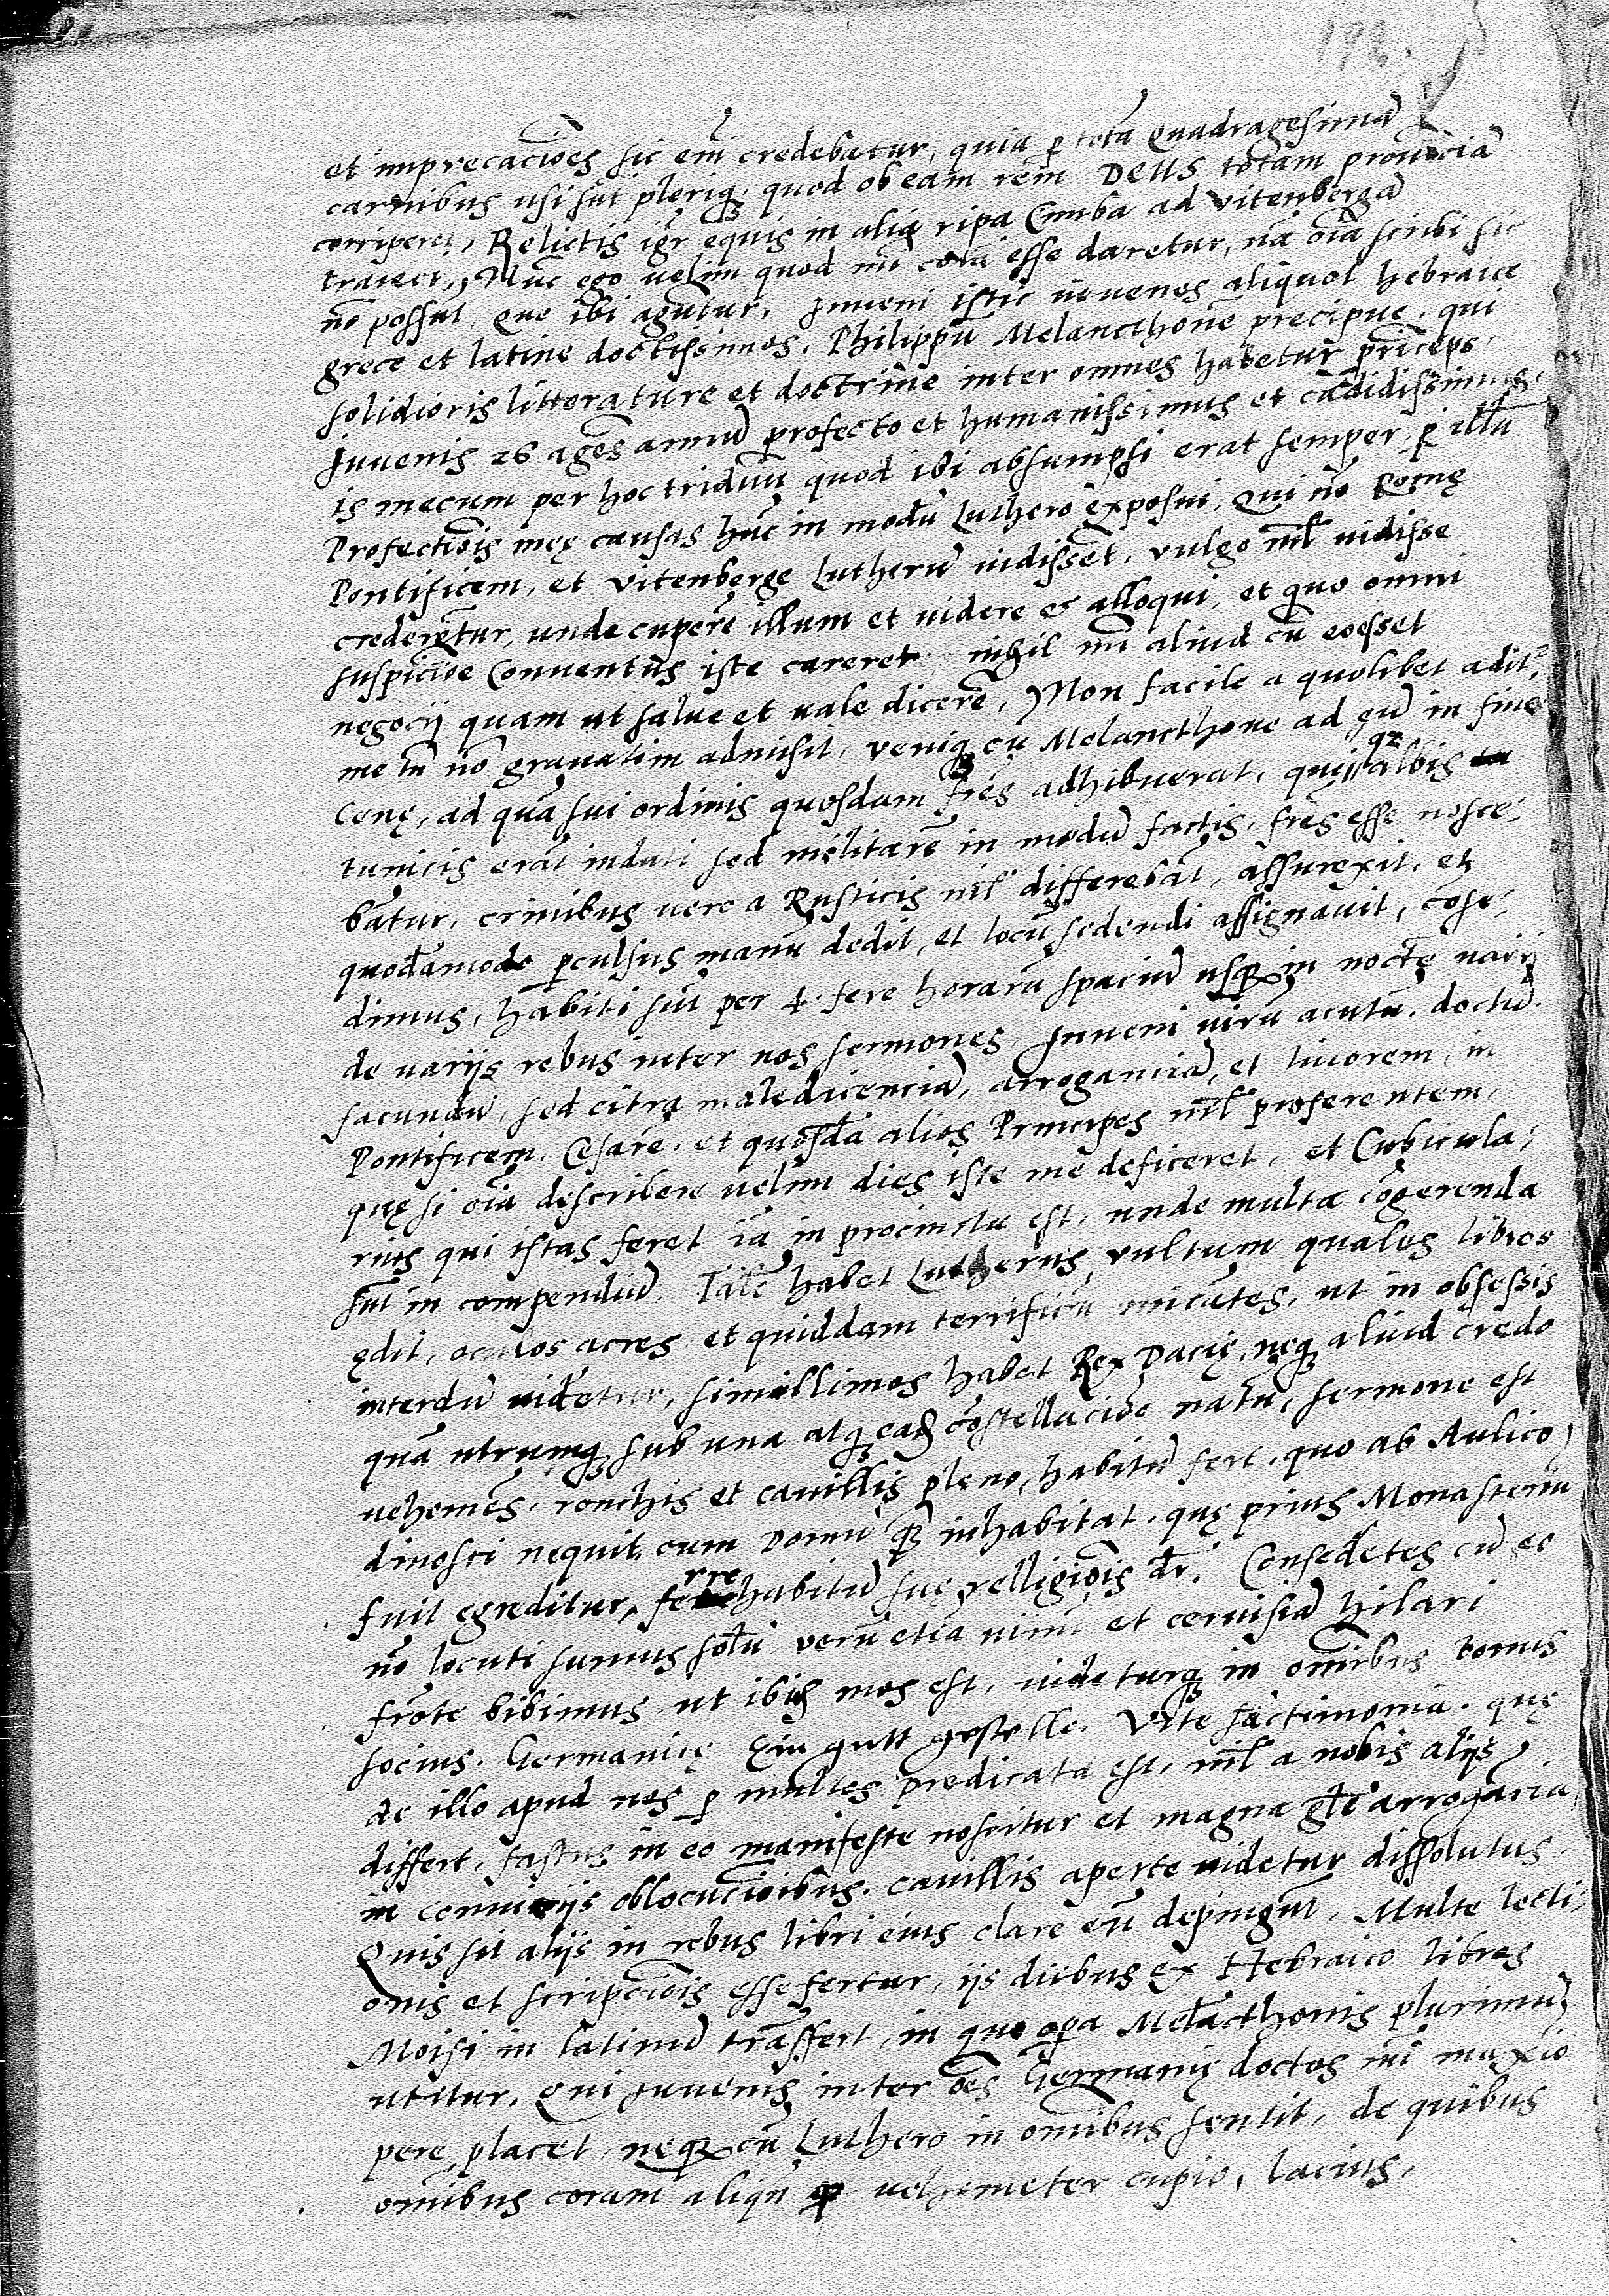 198.
et imprecaciões sic em̃ credebatur, quia p totã Quadragesimã
carnibus usi sũt pleriq3, quod ob eam rem DEUS totam prouĩciã
corriperet, Relictis igr̃ equis in alia ripa Cimba ad Vitenbergã
traieci, Nũc ego uelim quod mi̅ corã esse daretur, nã oĩa scribi sic
nõ possũt, que ibi agũtur, Inueni istic iuuenes aliquot hebraice
grece et latine doctissimos, Philippũ Melancthonẽ precipue, qui
solidioris litterature et doctrine inter omnes habetur princeps,
Juuenis 26 agẽs annũ profecto et humanissimus et cãdidissimus,
is mecum per hoc triduũ quod ibi absumpsi erat semper, p illũ
Profectiõis meę causas hũc in modũ Luthero exposui, Qui nõ Romę
Pontificem, et Vitenberge Lutherũ uidissent, vulgo nil̃ uidisse
crederẽtur, unde cuperẽ illum et uidere et alloqui, et quo omni
suspiciõe Conuentus iste careret nihil mi̅ aliud cũ eo esset
negocij quam ut salue et uale dicerẽ, Non facile a quolibet adit̃,
me tñ nõ grauatim admisit, veniq3 cũ Melancthone ad eũ in fine
Cenę, ad quã sui ordinis quosdam frẽs adhibuerat, qui
qz
albis
tunicis erãt induti sed militarẽ in modũ factis, frẽs esse nosce-
bãtur, crinibus uero a Rusticis nil̃ differebãt, assurexit, et
quodãmodo pculsus manũ dedit, et locũ sedendi assignauit, cõse-
dimus, habiti sũt per 4 fere horarũ spaciũ usq3 in noctẽ varij
de varijs rebus inter nos sermones, Inueni virũ acutũ, doctũ.
facundũ, sed citra maledicenciã, arroganciã, et liuorem, in
Pontificem, Cesarẽ, et quosdã alios Principes nil̃ proferentem,
quę si oĩa describere uelim dies iste me deficeret, et Cubicula-
rius qui istas feret iã in procinctu est, unde multa cõgerenda
sũt in compendiũ. Talẽ habet Lutherus, vultum quales libros
ędit, oculos acres, et quiddam terrificũ micãtes, ut in obsessis
interdũ uidetur, simillimos habet Rex Dacię, neq3 aliud credo
quã utrumq3 sub una atq3 eadẽ cõstellaciõe natũ, sermone est
uehemẽs, ronchis et cauillis pleno, habitũ fert, quo ab Aulico
dinosci nequit, cum Domũ quã inhabitat, quę prius Monasteriũ
fuit egreditur, fe
rre
habitũ suę relligiõis dr̃. Consedẽtes cũ eo
nõ locuti sumus solũ, verũ etiã uinũ et ceruisiã hilari
frõte bibimus, ut ibi mos est, uideturq3 in omĩbus bonus
socius. Germanicę Ein gutt geselle. Vite sãctimonia, quę
de illo apud nos p multos predicata est, nil̃ a nobis alijs
differt, fastus in eo manifeste noscitur et magna glẽ arrogãcia
in conuicijs oblocuciõibus, cauillis aperte uidetur dissolutus.
Quis sit alijs in rebus libri eius clare eũ depingũt, Multe lecti-
onis et scripciõis esse fertur, ijs diebus ex Hebraico libros
Moisi in latinũ trãsfert, in quo opa Melãcthonis plurimũ
utitur, Qui Juuenis inter oẽs Germanię doctos mi̅ maxĩo-
pere placet, neq3 cũ Luthero in omĩbus sentit, de quibus
omĩbus coram aliqñ uehemẽter cupio, lacius,